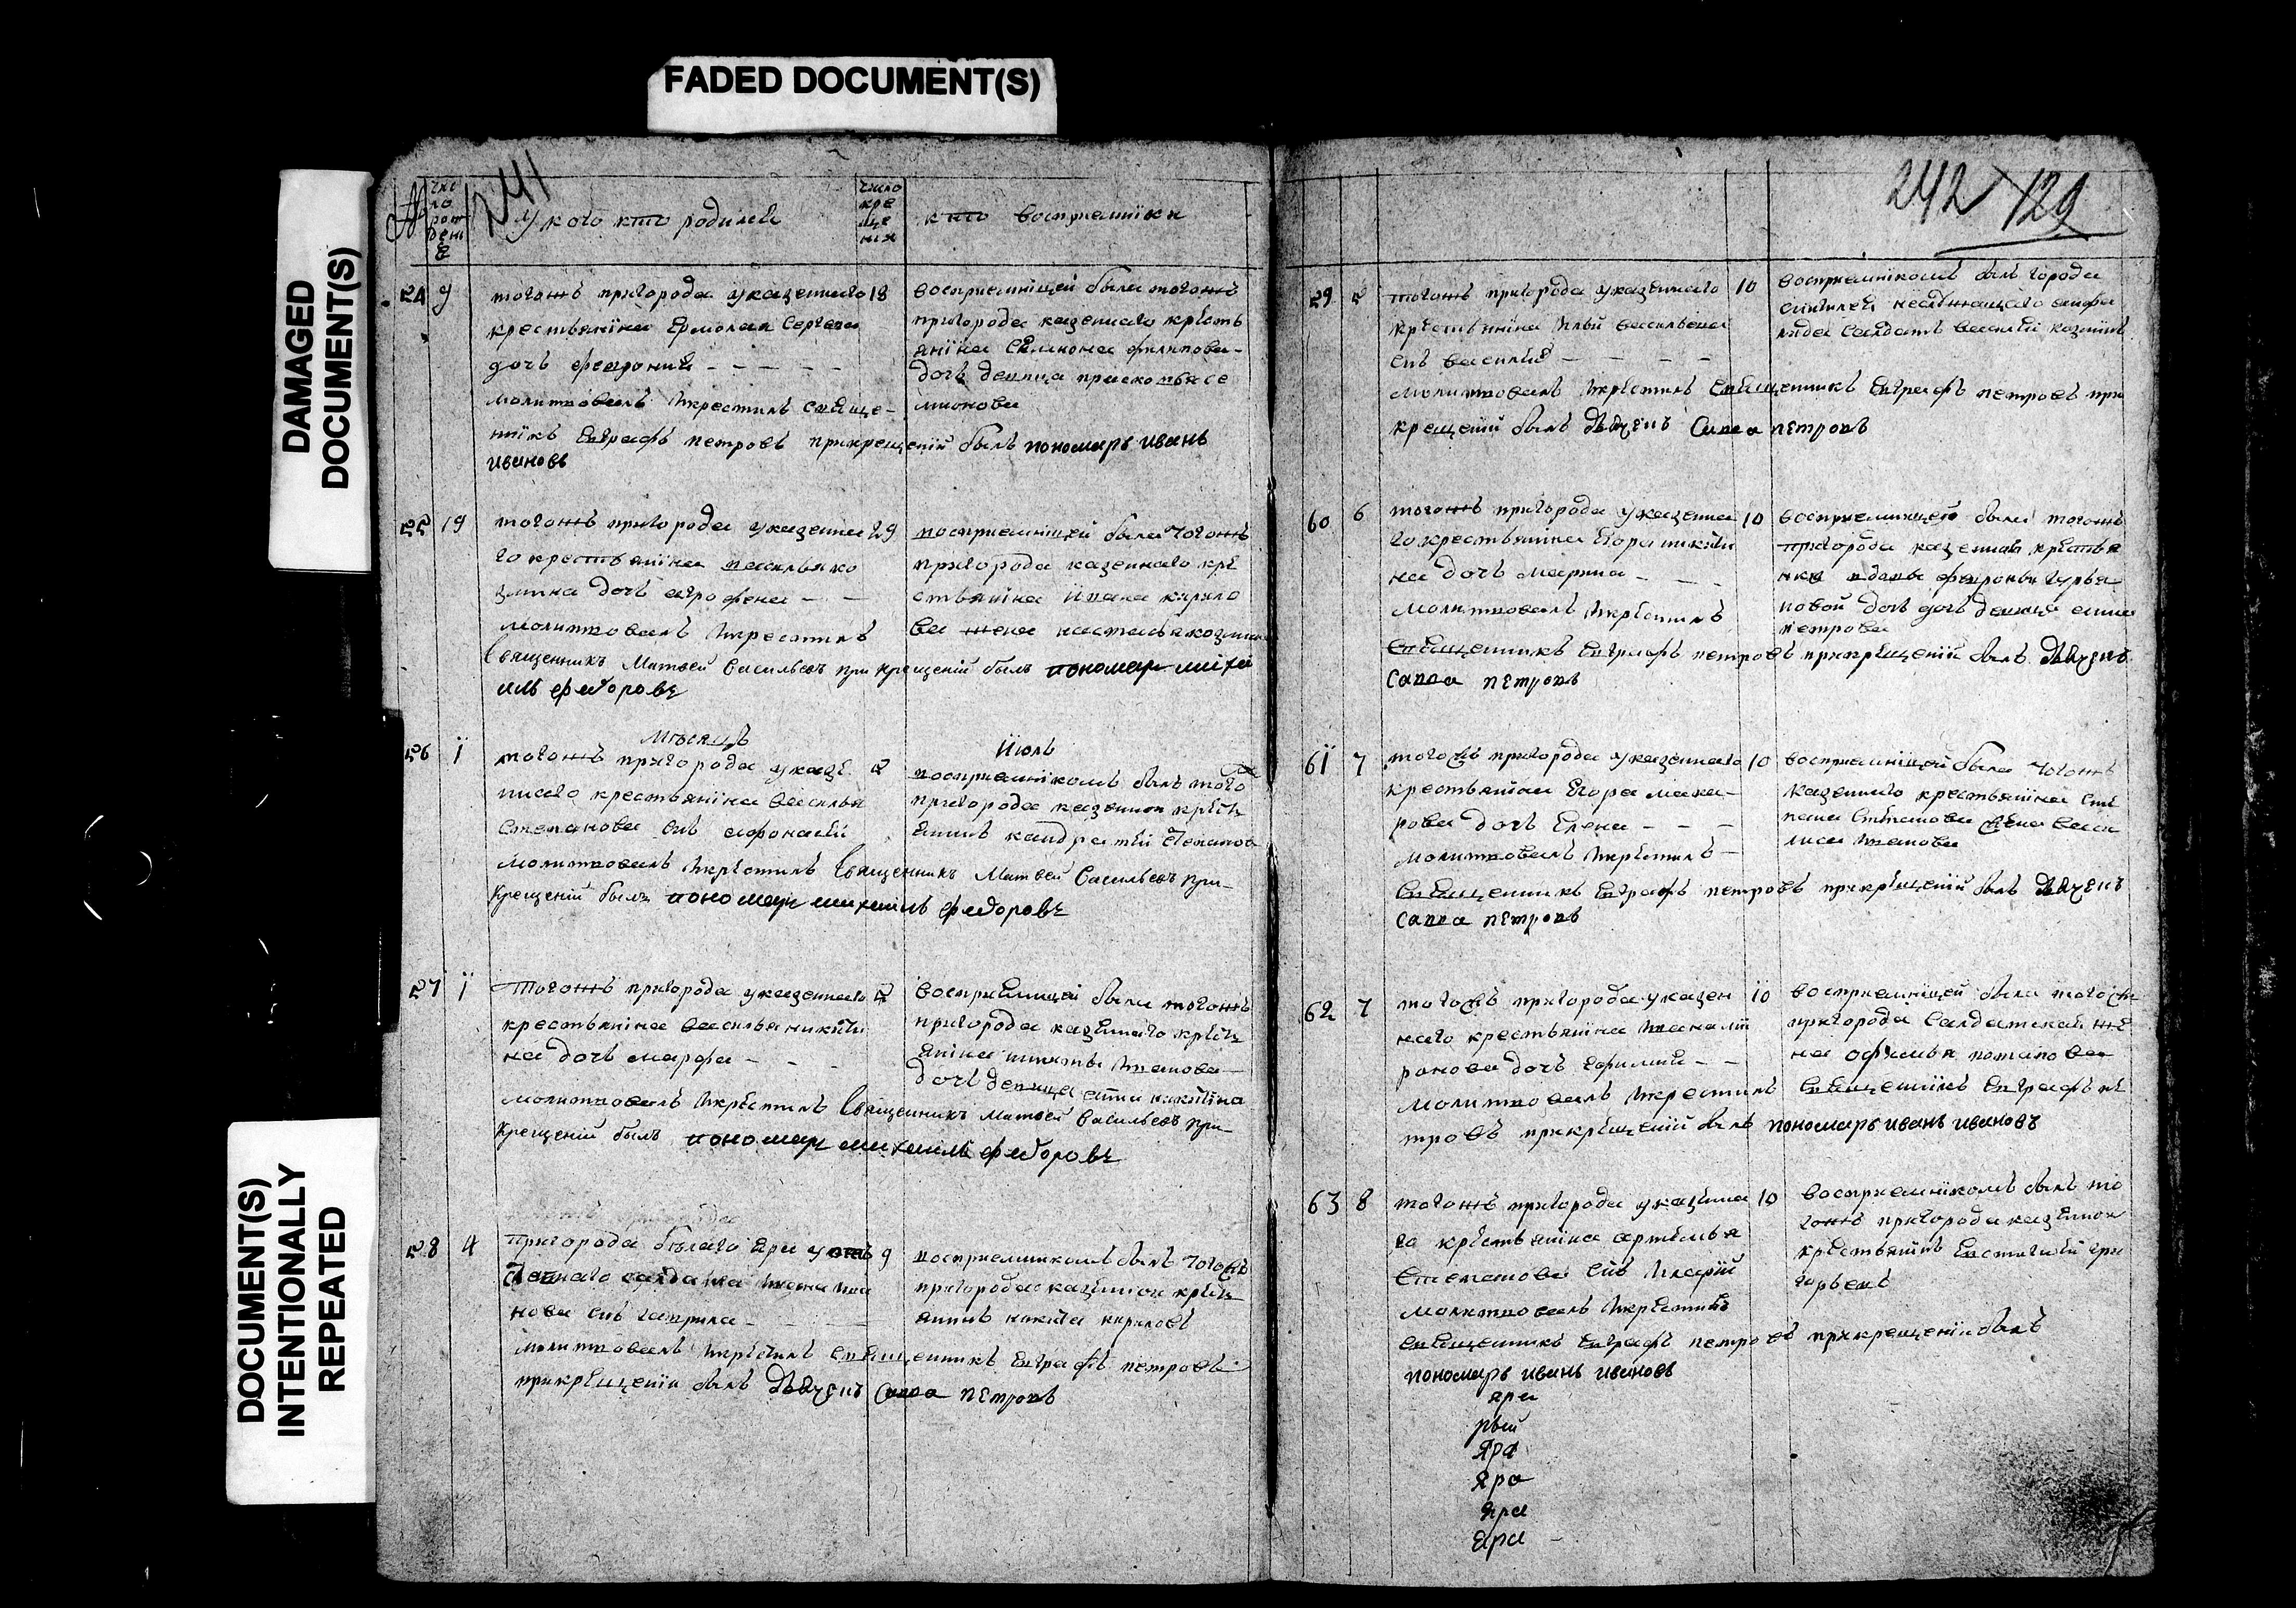 FADED DOCUMENT(S)
DAMAGED
DOCUMENT(S)
DOCUMENT(S)
INTENTIONALLY
REPEATED
241
№
чис
ло
рож
дені
е
У кого кто родился
число
кре
ще
нія
кто восприемники
54 9
тогожъ пригорода указеннаго 18
крестьянина Ермолая Сергеева
дочь феврониія
молитвовалъ икрестилъ свяще-
нникъ Евграфъ петровъ прикрещеніи былъ пономарь иванъ
ивановъ
восприемницей была тогожъ
пригорода казеннаго крестъ
янина Семиона филипова
дочь девица прасковья се
мионова
55 19
тогожъ пригорода указенна 29
го крестьянина василья ко
змина дочь аграфена
молитвовалъ икрестилъ
Священникъ Матвей Васильевъ при крещеній былъ пономарь михаи
илъ федоровъ
восприемницей была тогожъ
пригорода казеннаго кре
стьянина ивана кирило
ва жена настасья козмина
Мѣсяцъ Июль
56 1
тогожъ пригорода указе 2
ннаго крестьянина василья
степанова сынъ афонасій
молитвовалъ икрестилъ Священникъ Матвей Васильевъ при-
крещеній былъ пономарь михаилъ федоровъ
восприемникомъ былъ того
пригорода казенной крестъ
янинъ кандратій степановъ
57 1
Тогожъ пригорода указеннаго
крестьянина василья никити
на дочь марфа
молитвовалъ икрестилъ Священникъ Матвей Васильевъ при-
крещеній былъ пономарь михаилъ федоровъ
восприемницей была тогожъ
пригорода казеннаго крестъ
янина никиты иванова
дочь девица анна никитина
58 4
пригорода белаго яра у 9
салдата ивана ива
нова сынъ гаврила
молитвовалъ икрестилъ священникъ Евграфъ петровъ
прикрещеніи былъ дьячекъ Савва петровъ
восприемникомъ былъ тогожъ
пригорода казенной крестъ
янинъ никита кириловъ
242 129
59 5
тогожъ пригорода указеннаго 10
крестьянина Ильи васильева
сынъ василий
молитвовалъ икрестилъ священникъ Евграфъ петровъ при
крещеніи былъ дьячекъ Савва петровъ
восприемникомъ былъ города
салдатъ василій козминъ
60 6
тогожъ пригорода указенна 10
го крестьянина Егора никити
на дочь марина
молитвовалъ икрестилъ
священникъ Евграфъ петровъ прикрещеній былъ дьячекъ
Савва петровъ
восприемницей была тогожъ
пригорода казеннаго крестья
нки вдовы февроньи гурья
новой дочь девица анна
петрова
61 7
тогожъ пригорода указеннаго 10
крестьянина Егора мака-
рова дочь Елена
молитвовалъ икрестилъ
Священникъ Евграфъ петровъ прикрещеній былъ дьячекъ
Савва петровъ
восприемницей была тогожъ
казеннаго крестьянина сте
пана Степанова жена васи
лиса иванова
62 7
тогожъ пригорода указен 10
наго крестьянина ивана ми
ронова дочь Ефимия
молитвовалъ икрестилъ священникъ Евграфъ пе
тровъ прикрещеній былъ пономарь иванъ ивановъ
восприемницей была тогожъ
пригорода салдатской же
на офимья потапова
63 8
тогожъ пригорода указенна 10
го крестьянина артемья
степанова сынъ Иларій
молитвовалъ икрестилъ
священникъ Евграфъ петровъ прикрещеніи былъ
пономарь иванъ ивановъ
восприемникомъ былъ то
гожъ пригорода казенной
крестьянинъ Евстигній гри
горьевъ
яра
рый
Яра
Яра
яра
яра